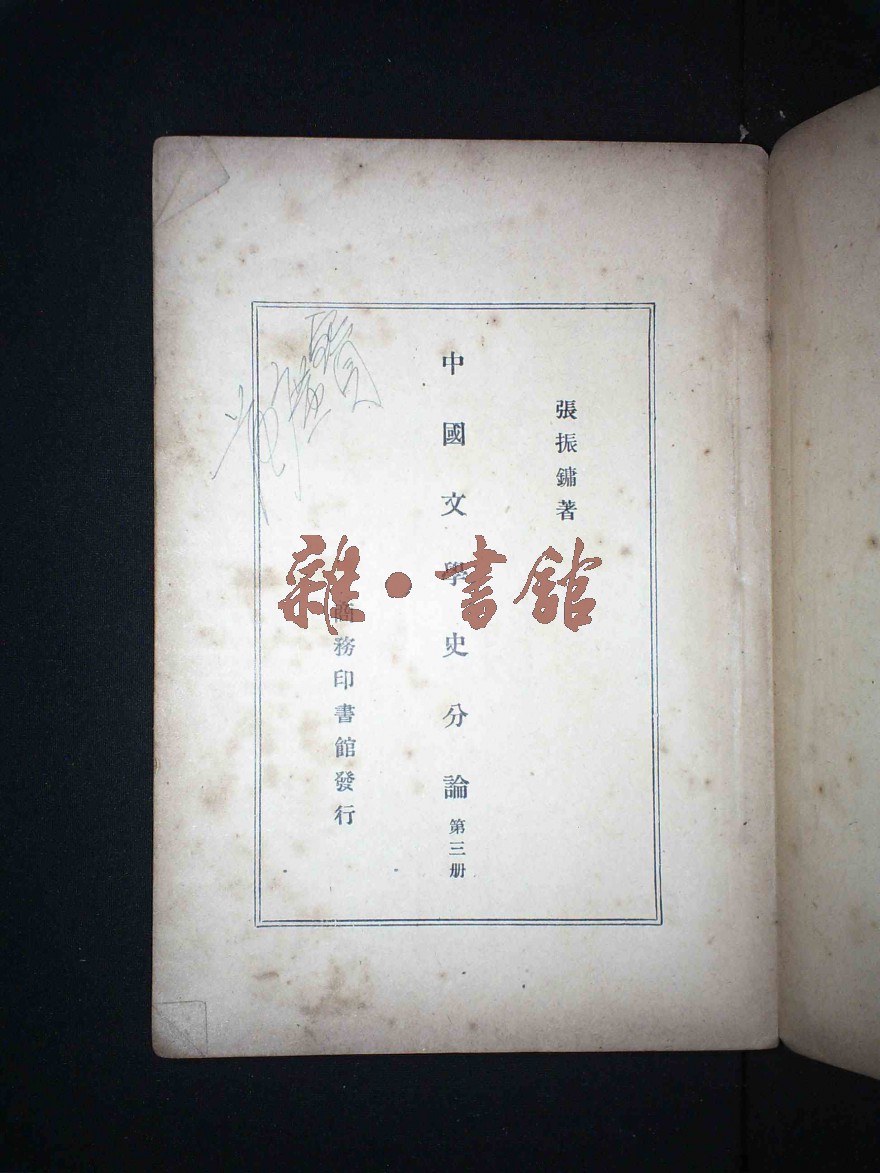 張振鏞著
中國文學史分論 第三册
商務印書館發行
雜·書館